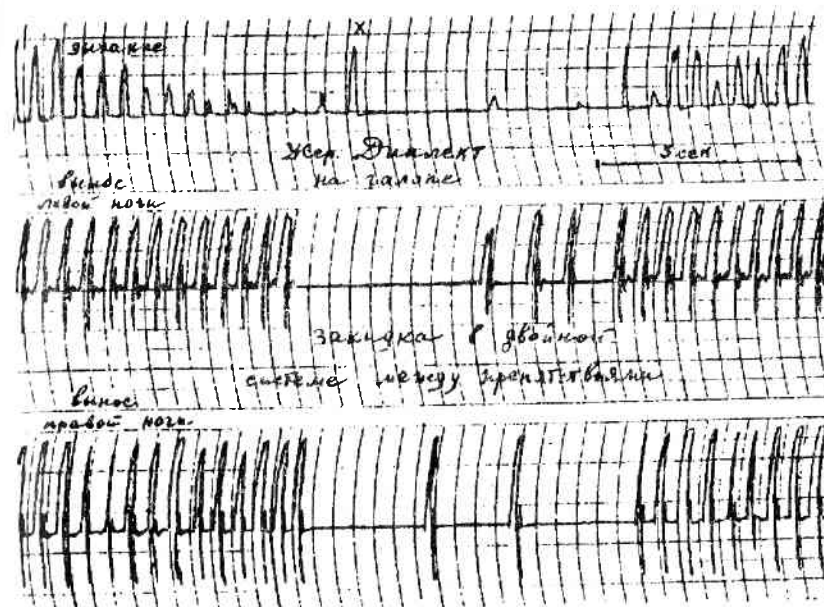 x
дыхание
жер. Диалект
на галопе
5 сек
вынос
левой ноги
закидка в двойной
системе между препятствиями
вынос
правой ноги